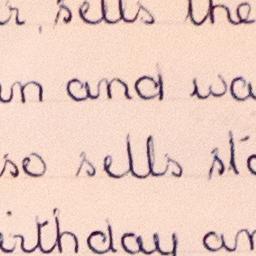 r, sells the
n and wa
so sells sto
irthday an